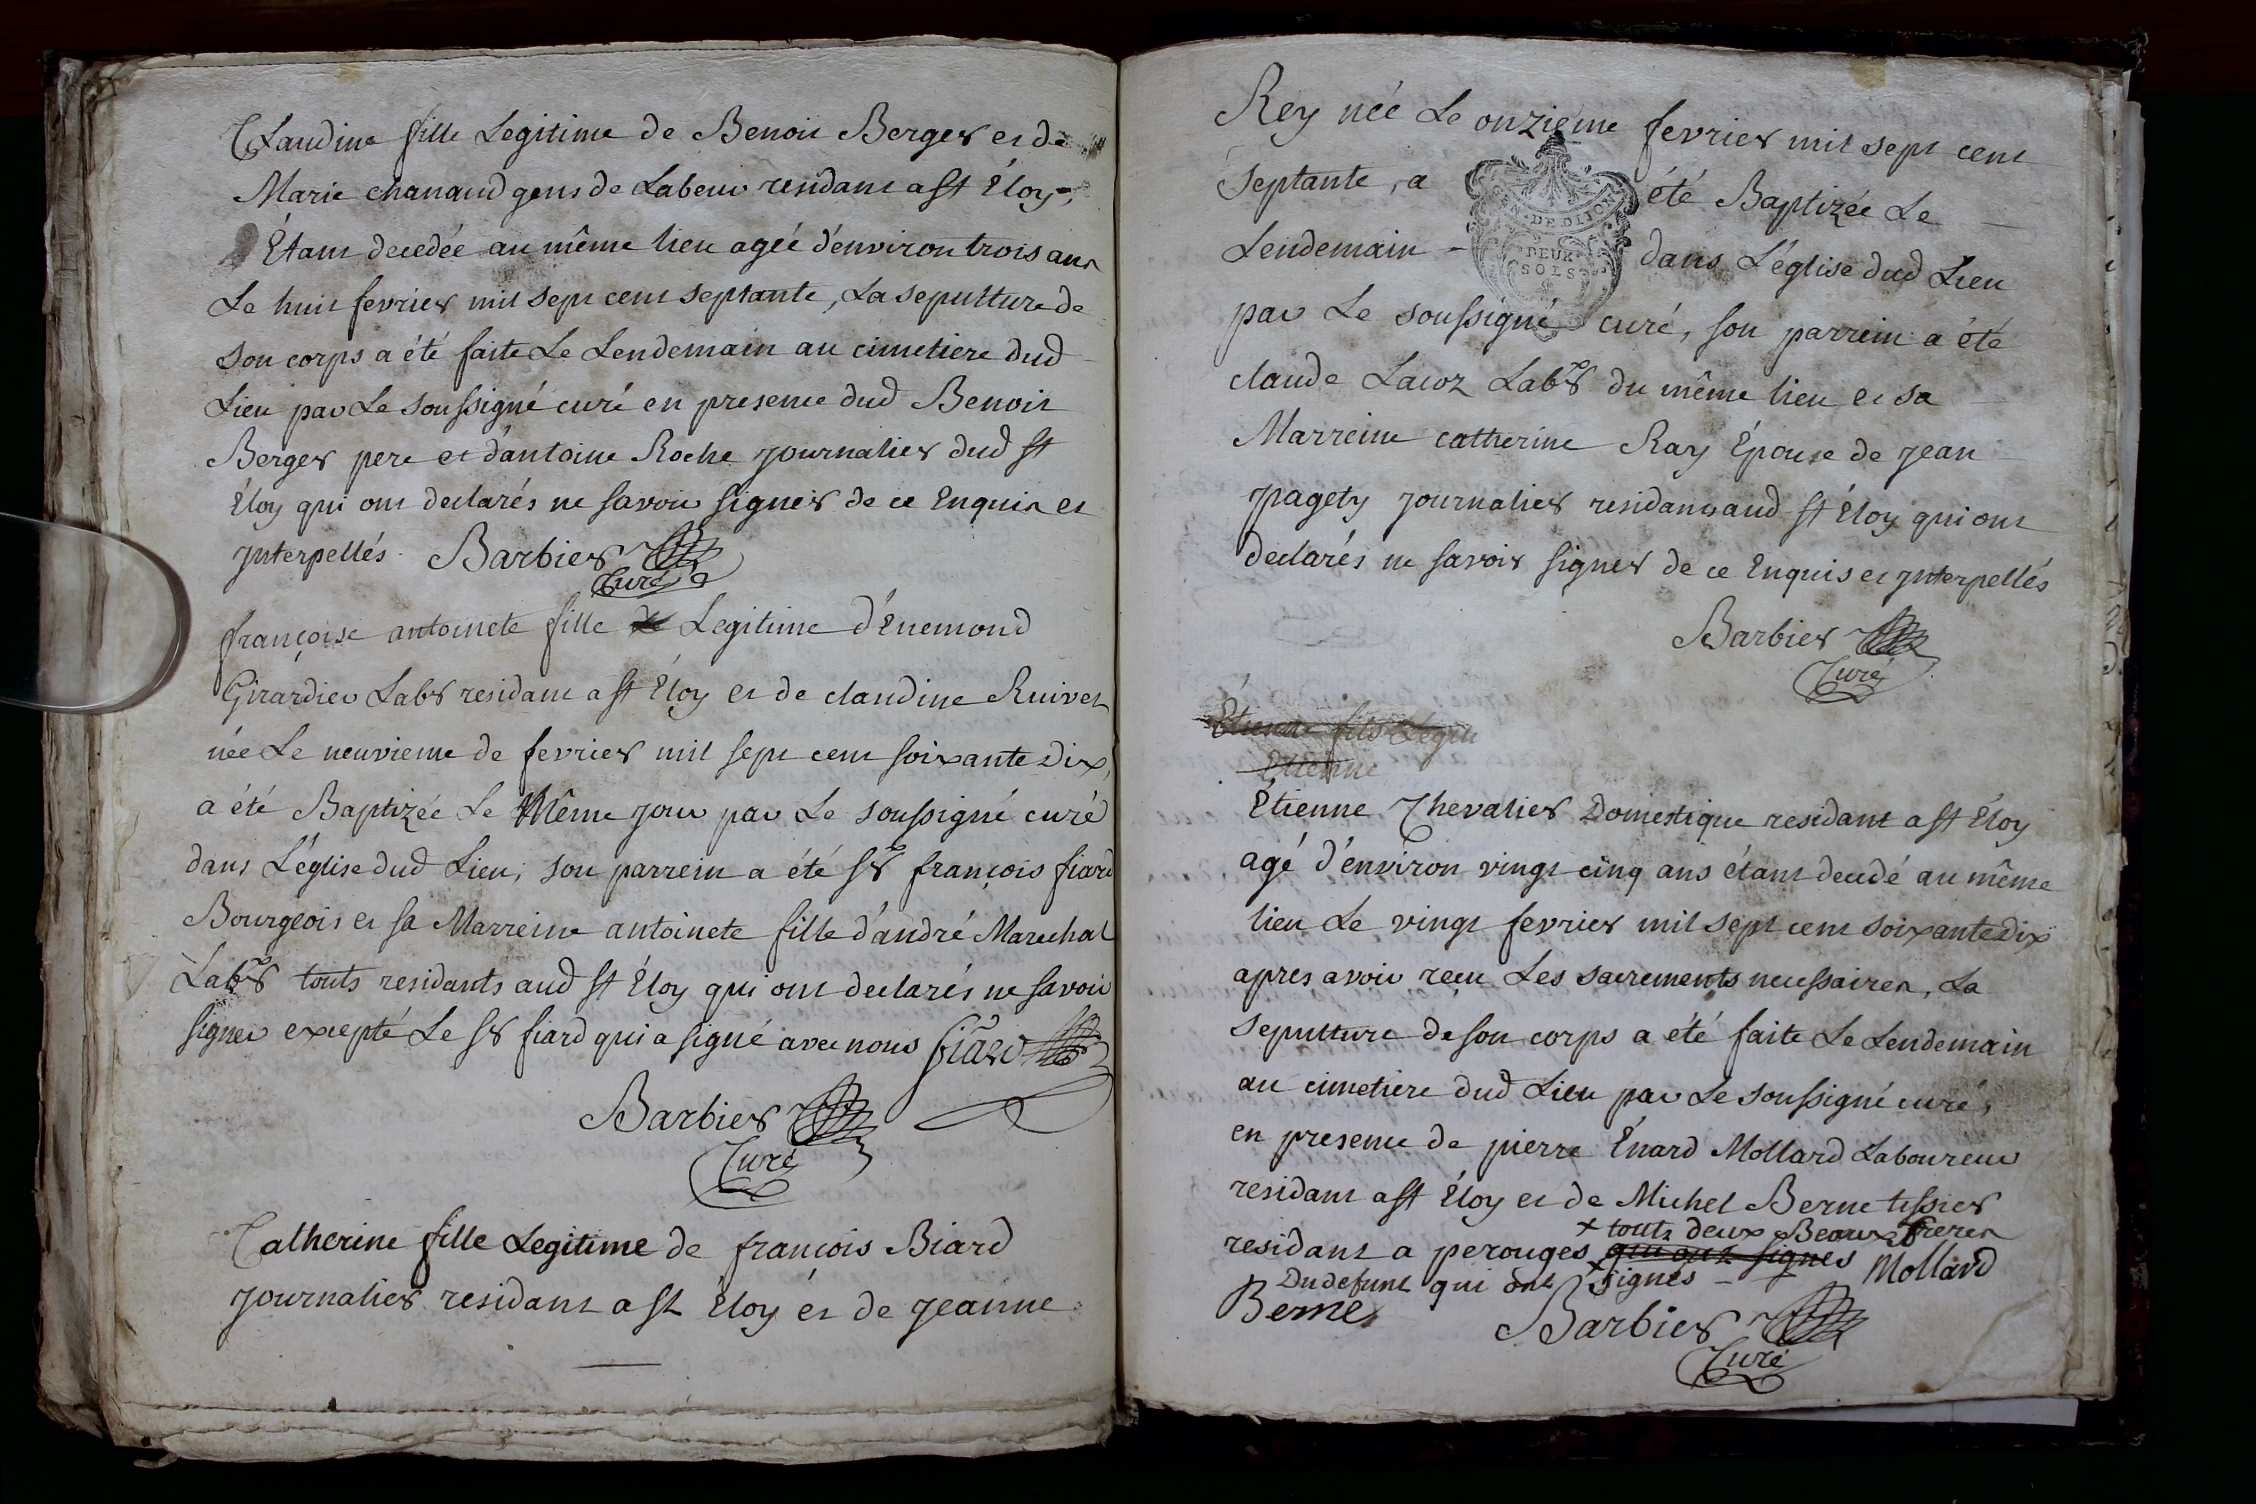 Claudine fille Legitime de Benoit Berger et de
Marie chanaud gens de Labeur residant a St Éloy
Étant decedée au même lieu agée d'environ trois ans
Le huit fevrier mil sept cent septante, La sepulture de
son corps a été faite Le Lendemain au cimetiere dud
Lieu par Le soussigné curé en presence dud Benoit
Berger pere et d'antoine Roche journalier dud St
Éloy qui ont declarés ne savoir signer de ce Enquis et
jnterpellés. Barbier
Curé
françoise antoinete fille Legitime d'Énemond
Girardier Labr residant a St Éloy et de claudine Ruivet
née Le neuvieme de fevrier mil sept cent soixante Dix,
a été Baptizée Le Même jour par Le soussigné curé
dans L'église dud Lieu; son parrein a été sr françois fiard
Bourgeois et sa Marreine antoinete fille d'andré Marechal
Labr touts residants aud St Éloy qui ont declarés ne savoir
signer excepté Le sr fiard qui a signé avec nous fiard
Barbier
Curé
Catherine fille Legitime de françois Biard
journalier residant a St Éloy et de jeanne
Rey née Le onzieme fevrier mil sept cent
septante, a été Baptizée Le
Lendemain - dans L'église dud Lieu
GEN. DE DIJON
DEUX
SOLS
par Le soussigné curé, son parrein a été
claude Lacoz Labr du même lieu et sa
Marreine catherine Ray Épouse de jean
pagety journalier residants aud St Éloy qui ont
declarés ne savoir signer de ce Enquis et jnterpellés
Barbier
Curé
Étienne fils Legiti
Etienne
Étienne Chevalier Domestique residant a St Éloy
agé d'environ vingt cinq ans étant decedé au même
lieu Le vingt fevrier mil sept cent soixante Dix
apres avoir reçu Les sacrements necessaires, La
sepulture de son corps a été faite Le Lendemain
au cimetiere dud Lieu par Le soussigné curé,
en presence de pierre Énard Mollard Laboureur
residant a St Éloy et de Michel Berne tissier
x touts deux Beaux freres
residant a perouges qui ont signes Mollard
Du defunt qui ont x signés -
Berne
Barbier
Curé